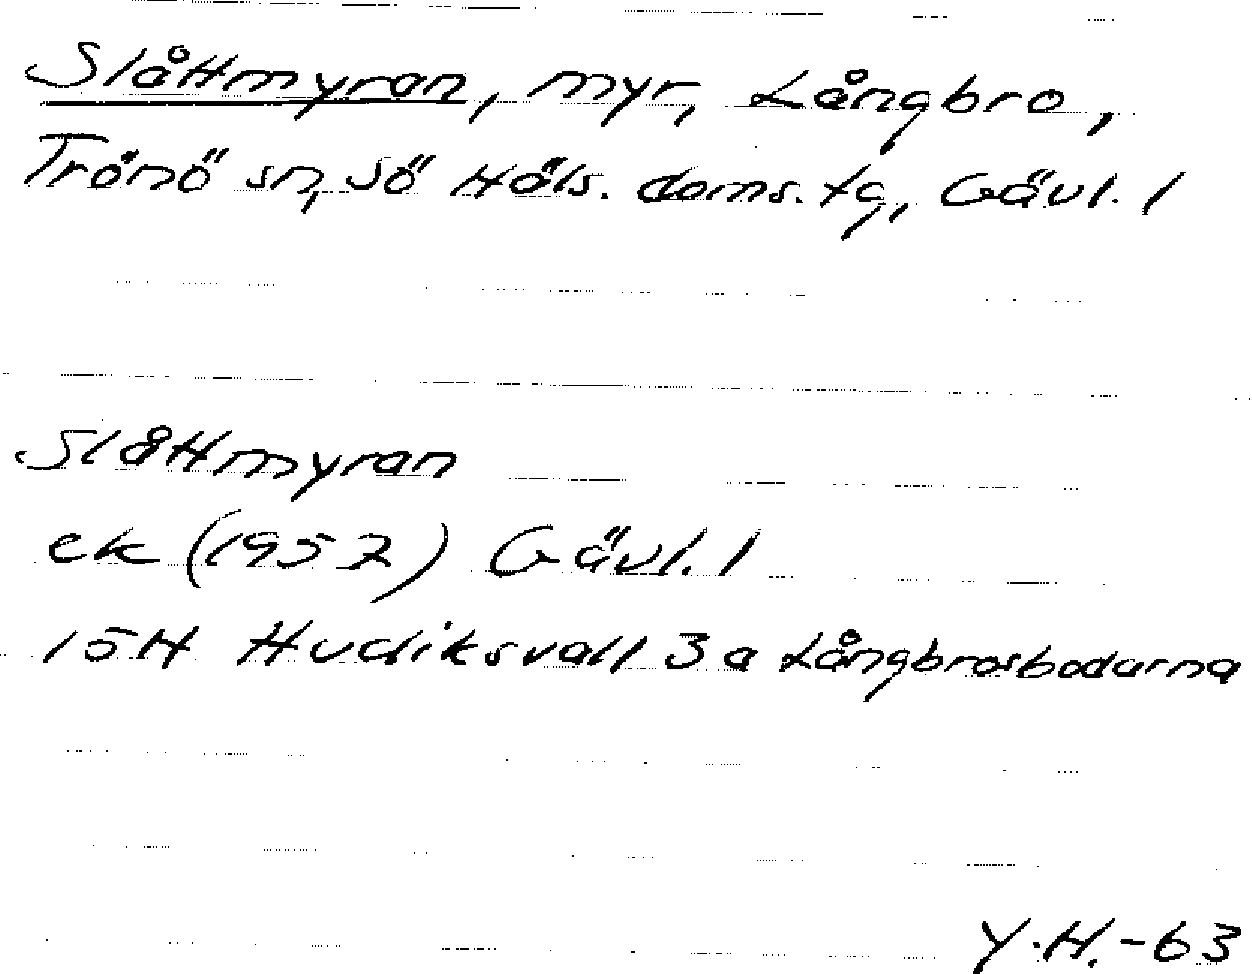 Slåttmyran, myr, Långbro,
Trönö sn, Sö Häls. doms. tg, Gävl. l
Slåttmyran
ek (1957) Gävl. l
15H Hudiksvall 3a Långbrosbodarna
Y.H. -63